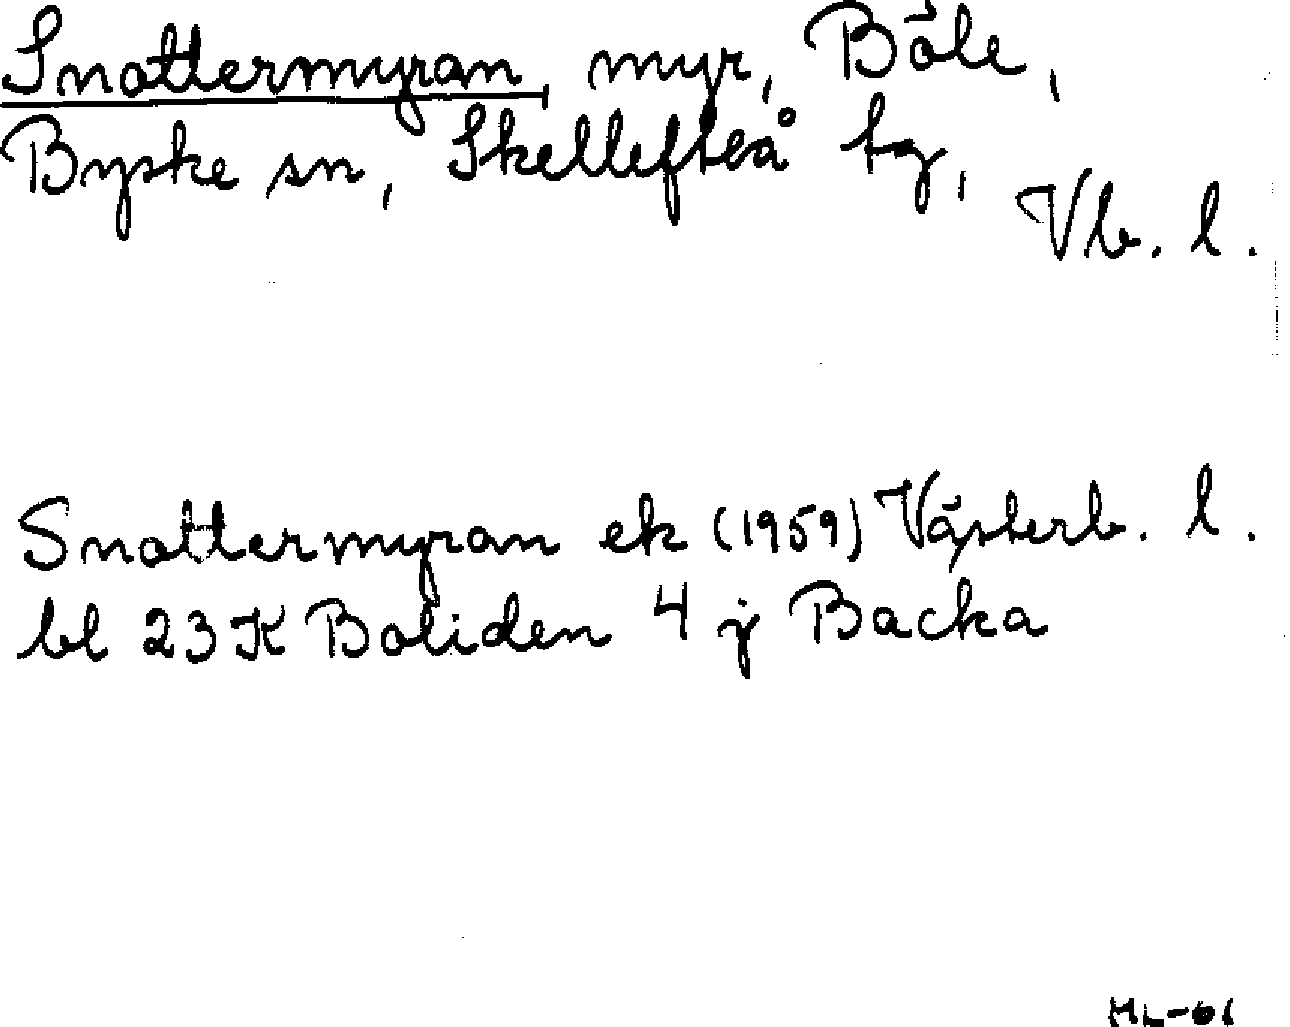 Snottermyran, myr, Böle,
Byske sn, Skellefteå tg,
Vb. l.
Snottermyran ek (1959) Västerb. l.
bl 23 K Boliden 4 j Backa
ML-61